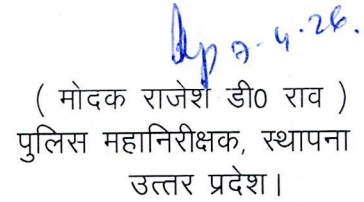 7.4.26.
( मोदक राजेश डी0 राव )
पुलिस महानिरीक्षक, स्थापना
उत्तर प्रदेश।